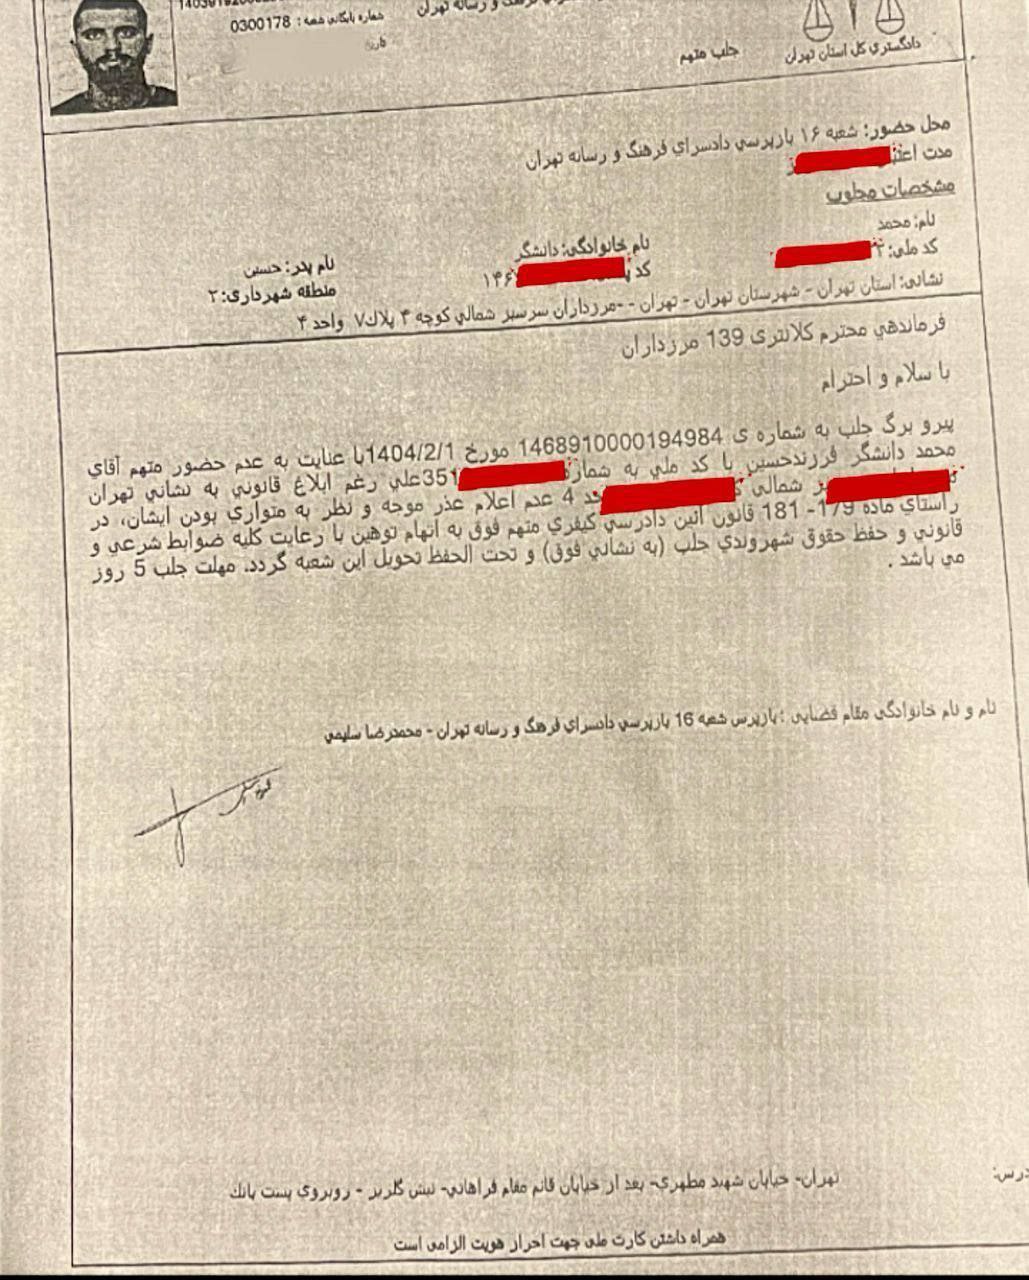 شماره بایگانی شعبه: 0300178
تاریخ
دادسرای فرهنگ و رسانه تهران
دادگستری کل استان تهران
جلب متهم
محل حضور: شعبه ۱۶ بازپرسي دادسراي فرهنگ و رسانه تهران
مدت
مشخصات مجلوب
نام: محمد
نام خانوادگی: دانشگر
نام پدر: حسین
کد ملی: ۲
کد ۱۴۶
منطقه شهرداری: ۲
نشانی: استان تهران - شهرستان تهران - تهران - -مرزداران سرسبز شمالي کوچه ۴ پلاک۷ واحد ۴
فرماندهي محترم کلانتری 139 مرزداران
با سلام و احترام
پیرو برگ جلب به شماره ی 1468910000194984 مورخ 1404/2/1با عنایت به عدم حضور متهم آقاي
محمد دانشگر فرزندحسین با کد ملي به 351علي رغم ابلاغ قانوني به نشاني تهران
شمالي 4 عدم اعلام عذر موجه و نظر به متواري بودن ایشان، در
راستاي ماده 179- 181 قانون آئین دادرسي کیفري متهم فوق به اتهام توهین با رعایت کلیه ضوابط شرعي و
قانوني و حفظ حقوق شهروندي جلب (به نشاني فوق) و تحت الحفظ تحویل این شعبه گردد. مهلت جلب 5 روز
مي باشد .
نام و نام خانوادگی مقام قضایی : بازپرس شعبه 16 بازپرسي دادسراي فرهنگ و رسانه تهران - محمدرضا سلیمي
تهران- خیابان شهید مطهري- بعد از خیابان قائم مقام فراهاني- نبش گلریز - روبروي پست بانك
همراه داشتن کارت ملی جهت احراز هویت الزامی است